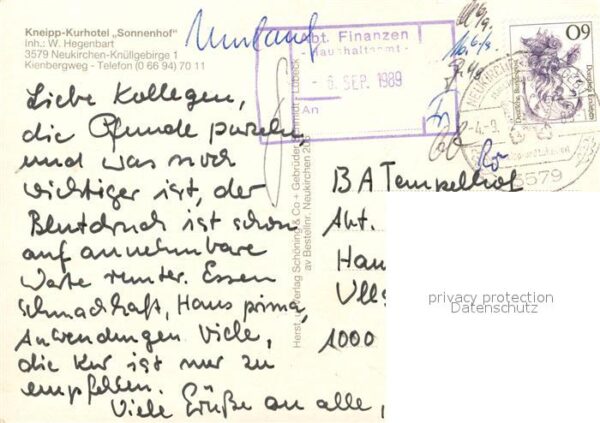 Kneipp-Kurhotel „Sonnenhof"
Inh.: W. Hegenbart
3579 Neukirchen-Knüllgebirge 1
Kienbergweg - Telefon (0 66 94) 70 11
Umlauf
Abt. Finanzen
- Haushaltsamt -
- 6. SEP. 1989
An
60
Deutsche Bundespost
-4.-9.
3579
Liebe Kollegen,
die Pfunde purzeln,
und was noch
wichtiger ist, der
Blutdruck ist schon
auf annehmbare
Werte runter. Essen
schmackhaft, Haus prima,
Anwendungen viele,
die Kur ist nur zu
empfehlen.
Viele Grüße an alle,
Herst. u. Verlag Schöning & Co + Gebrüder Schmidt - Lübeck
BA Tempelhof
Abt.
Hau
1000
privacy protection
Datenschutz